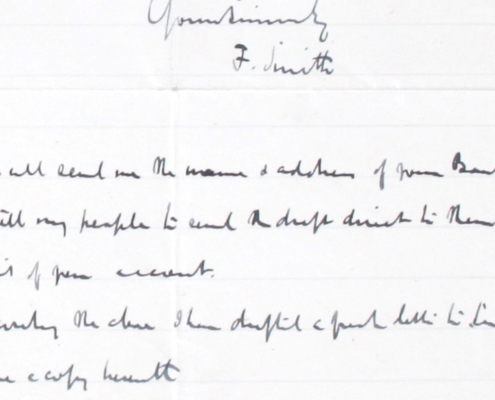 Yours sincerely
F. Smith
will send me the name & address of your Ban
tell my people to send the draft direct to them
of your account.
the above I have drafted a fresh letter to
a copy herewith